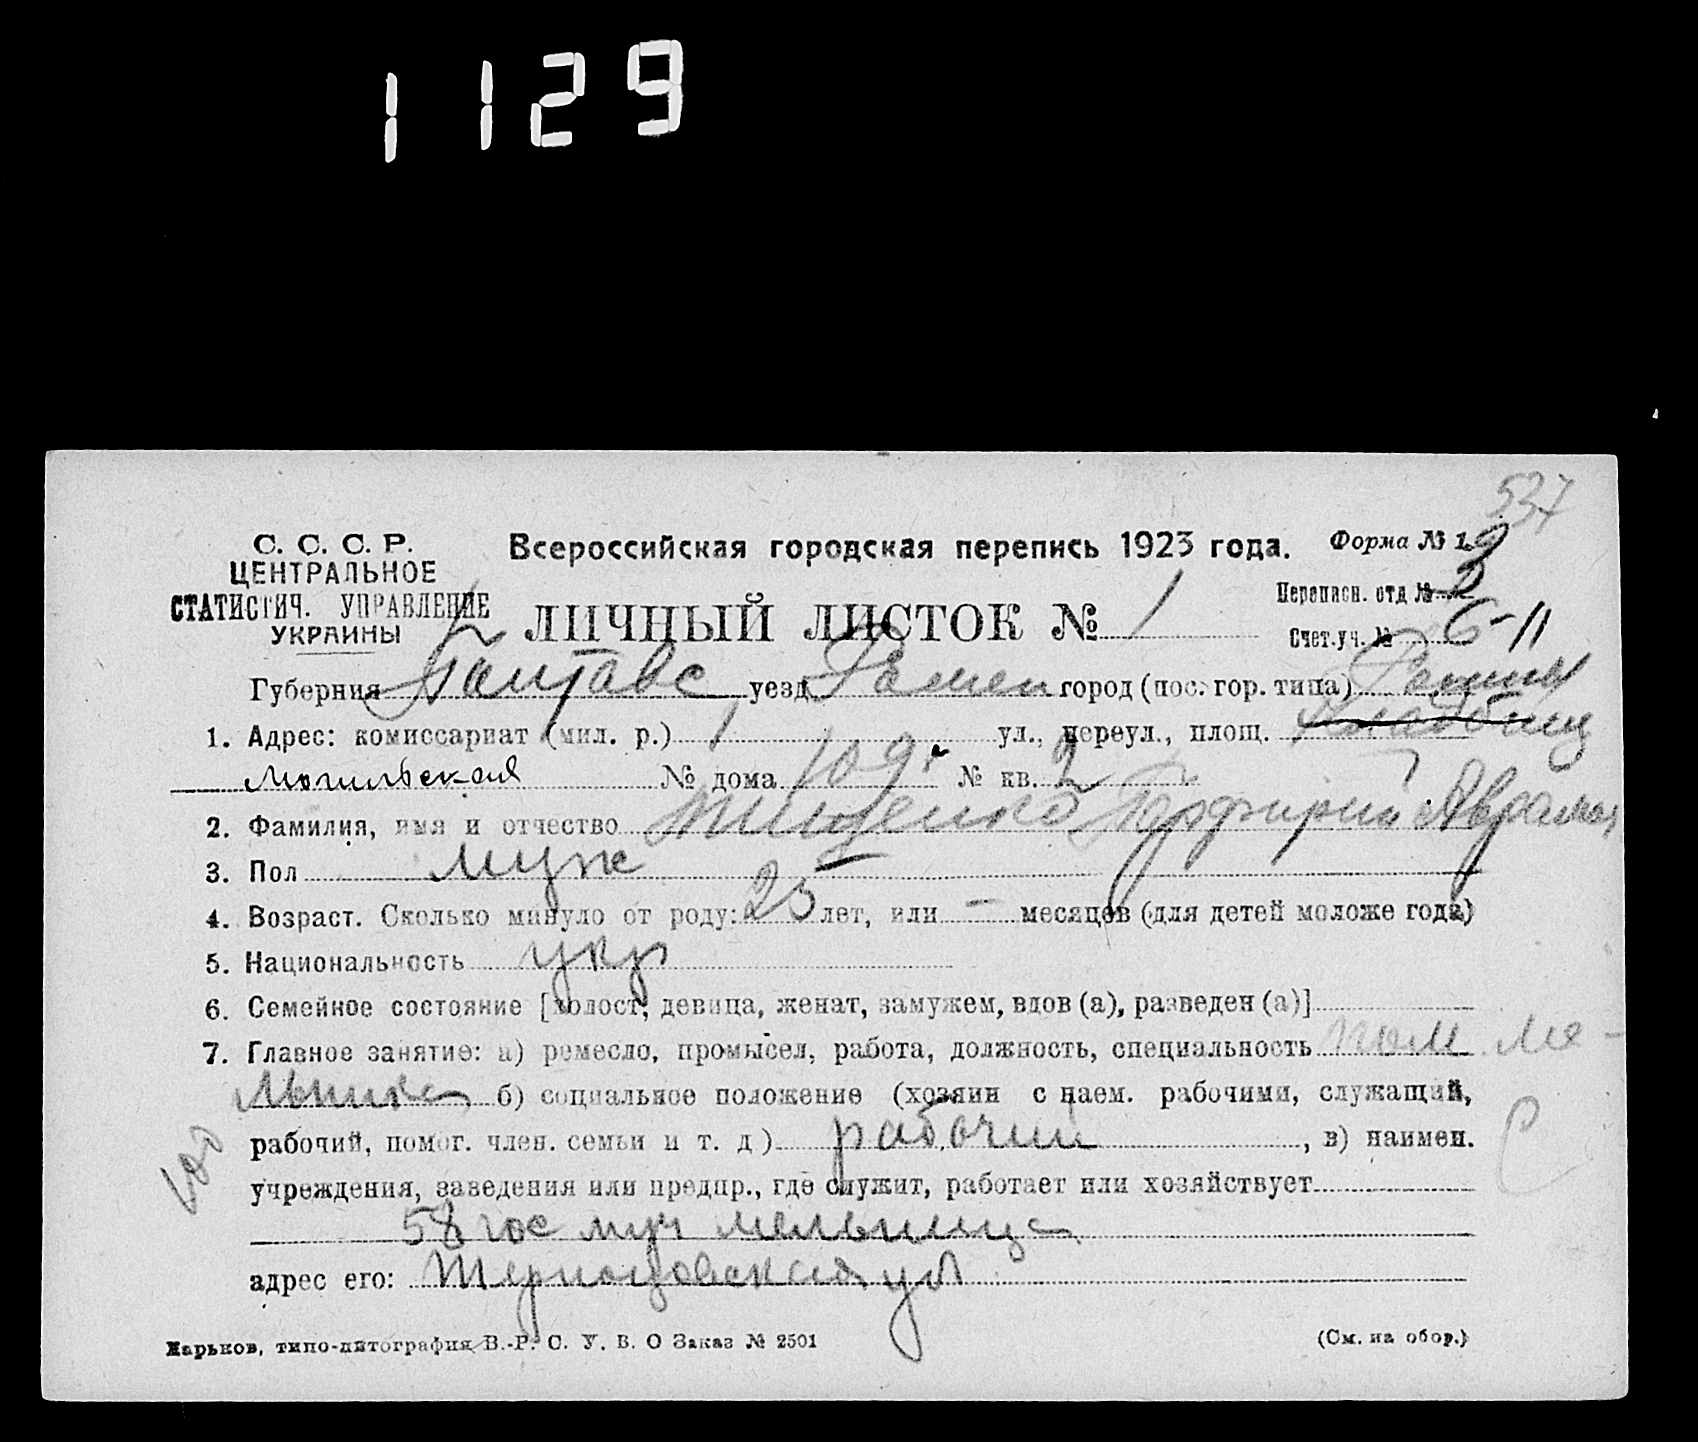 1129
537
С. С. С. Р.
ЦЕНТРАЛЬНОЕ
СТАТИСТИЧ. УПРАВЛЕНИЕ
УКРАИНЫ
Всероссийская городская перепись 1923 года.
Форма № 1
ЛИЧНЫЙ ЛИСТОК № 1
Переписн. отд № 2
Счет.уч. № 6-11
Губерния Полтавс уезд Ромен город (пос. гор. типа) Ромны
1. Адрес: комиссариат (мил. р.) 1 ул., переул., площ. Кладбищ
Могильская № дома 109 № кв. 2
2. Фамилия, имя и отчество Тищенко Порфирий Аврамов
3. Пол муж
4. Возраст. Сколько минуло от роду: 25 лет, или - месяцев (для детей моложе года)
5. Национальность укр
6. Семейное состояние [холост, девица, женат, замужем, вдов (а), разведен (а)]
7. Главное занятие: а) ремесло, промысел, работа, должность, специальность пом. ме-
льника б) социальное положение (хозяин с наем. рабочими, служащий,
рабочий, помог. член. семьи и т. д) рабочий, в) наимен.
учреждения, заведения или предпр., где служит, работает или хозяйствует
58 гос муч мельница
адрес его: ул
Харьков, типо-литография В.-Р. С. У. В. О Заказ № 2501
(См. на обор.)